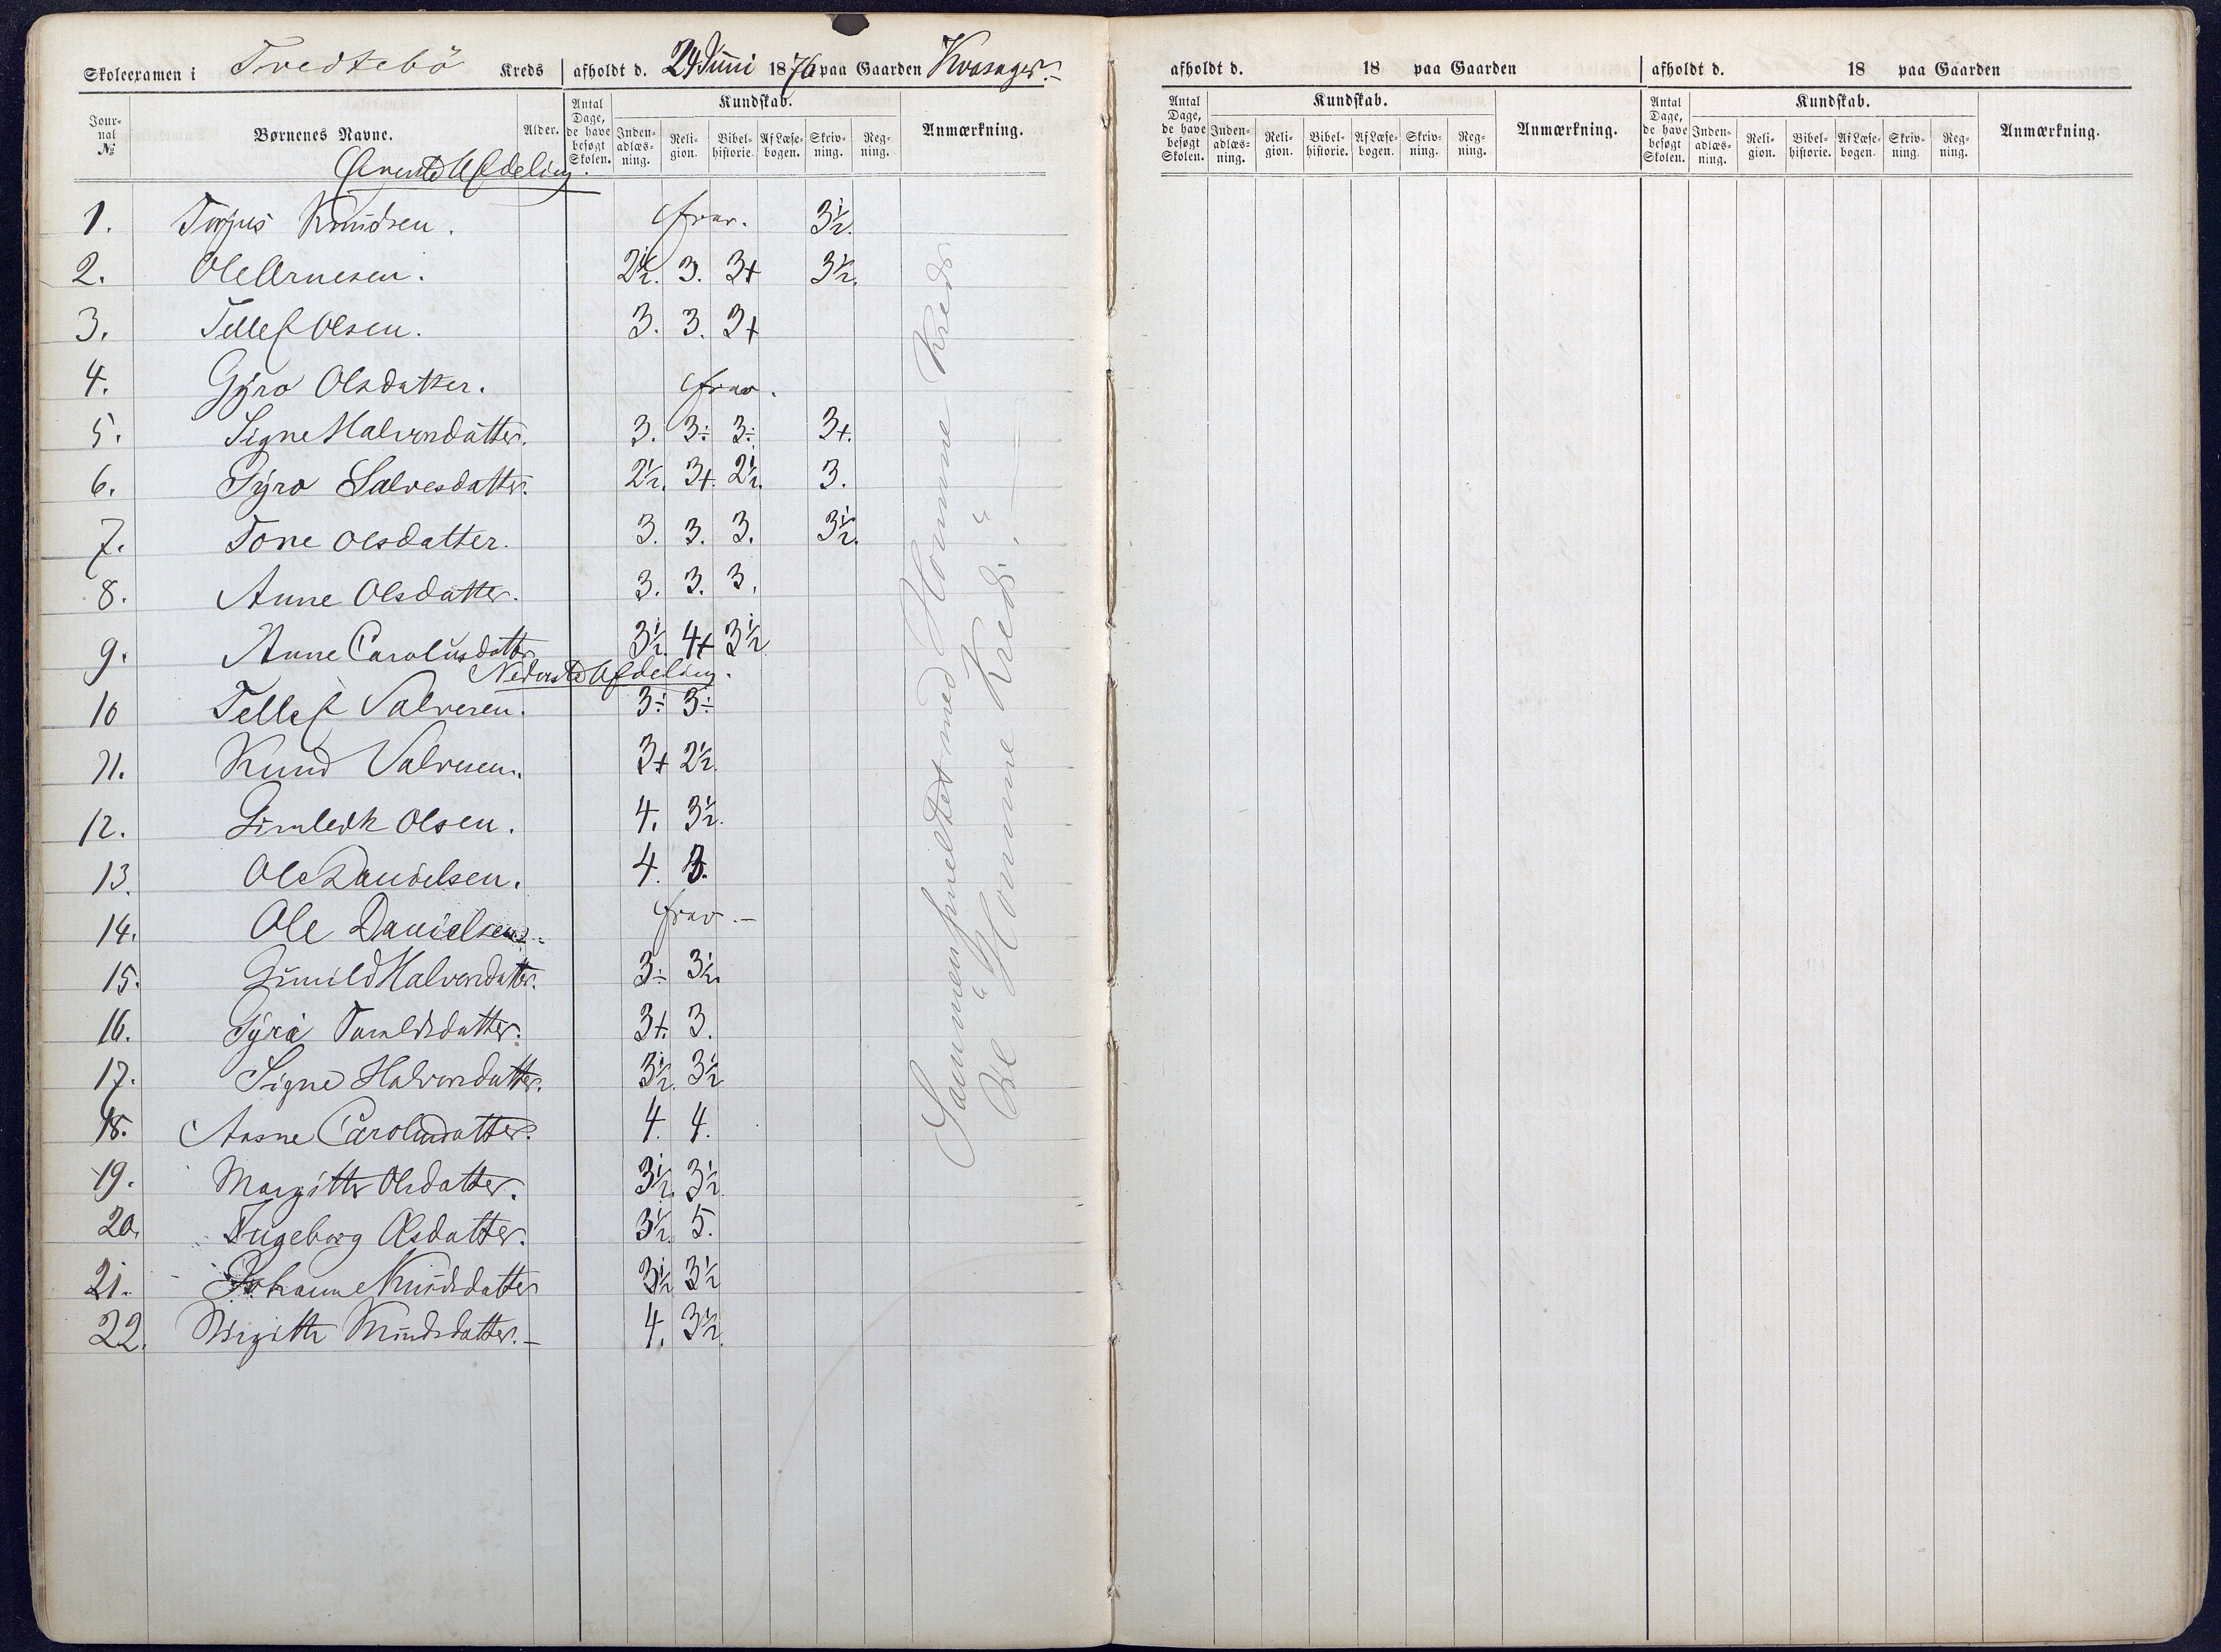 Skoleexamen i Tvedtebö Kreds afholdt d. 24 Juni 1876 paa Gaarden Kvasager.
Journal № Børnenes Navne. Alder. Antal Dage, de have besøgt Skolen. Kundskab. Indenadlæsning. Religion. Bibelhistorie. Af Læsebogen. Skrivning. Regning. Anmærkning.
Øverste Afdeling.
1. Torjus Knudsen. frav. 3½.
2. Ole Arnesen. 2½. 3. 3+ 3½.
3. Tellef Olsen. 3. 3. 3+
4. Gyro Olsdatter. frav.
5. Signe Halvorsdatter. 3. 3÷ 3÷ 3+.
6. Gyro Salvesdatter. 2½. 3+. 2½. 3.
7. Tone Olsdatter. 3. 3. 3. 3½.
8. Anne Olsdatter. 3. 3. 3.
9. Anne Carolusdatter 3½. 4+ 3½
Nederste Afdeling.
10 Tellef Salvesen. 3÷ 3÷
11. Knud Salvesen. 3+ 2½.
12. Gunleik Olsen. 4. 3½.
13. Ole Danielsen. 4. 3.
14. Ole Danielsen frav.
15. Gunild Halvorsdatter. 3÷ 3½.
16. Gyro Taraldsdatter. 3+. 3.
17. Signe Halvorsdatter. 3½. 3½
18. Aasne Carolusdatter. 4. 4.
19. Margitte Olsdatter. 3½. 3½.
20. Ingeborg Olsdatter. 3½. 5.
21. Johanne Knudsdatter 3½ 3½
22. Birgitte Knudsdatter. 4. 3½.
Sammensmeltet med Homme Kreds
Se "Homme Kreds".
afholdt d. 18 paa Gaarden
Antal Dage, de have besøgt Skolen. Kundskab. Indenadlæsning. Religion. Bibelhistorie. Af Læsebogen. Skrivning. Regning. Anmærkning.
afholdt d. 18 paa Gaarden
Antal Dage, de have besøgt Skolen. Kundskab. Indenadlæsning. Religion. Bibelhistorie. Af Læsebogen. Skrivning. Regning. Anmærkning.